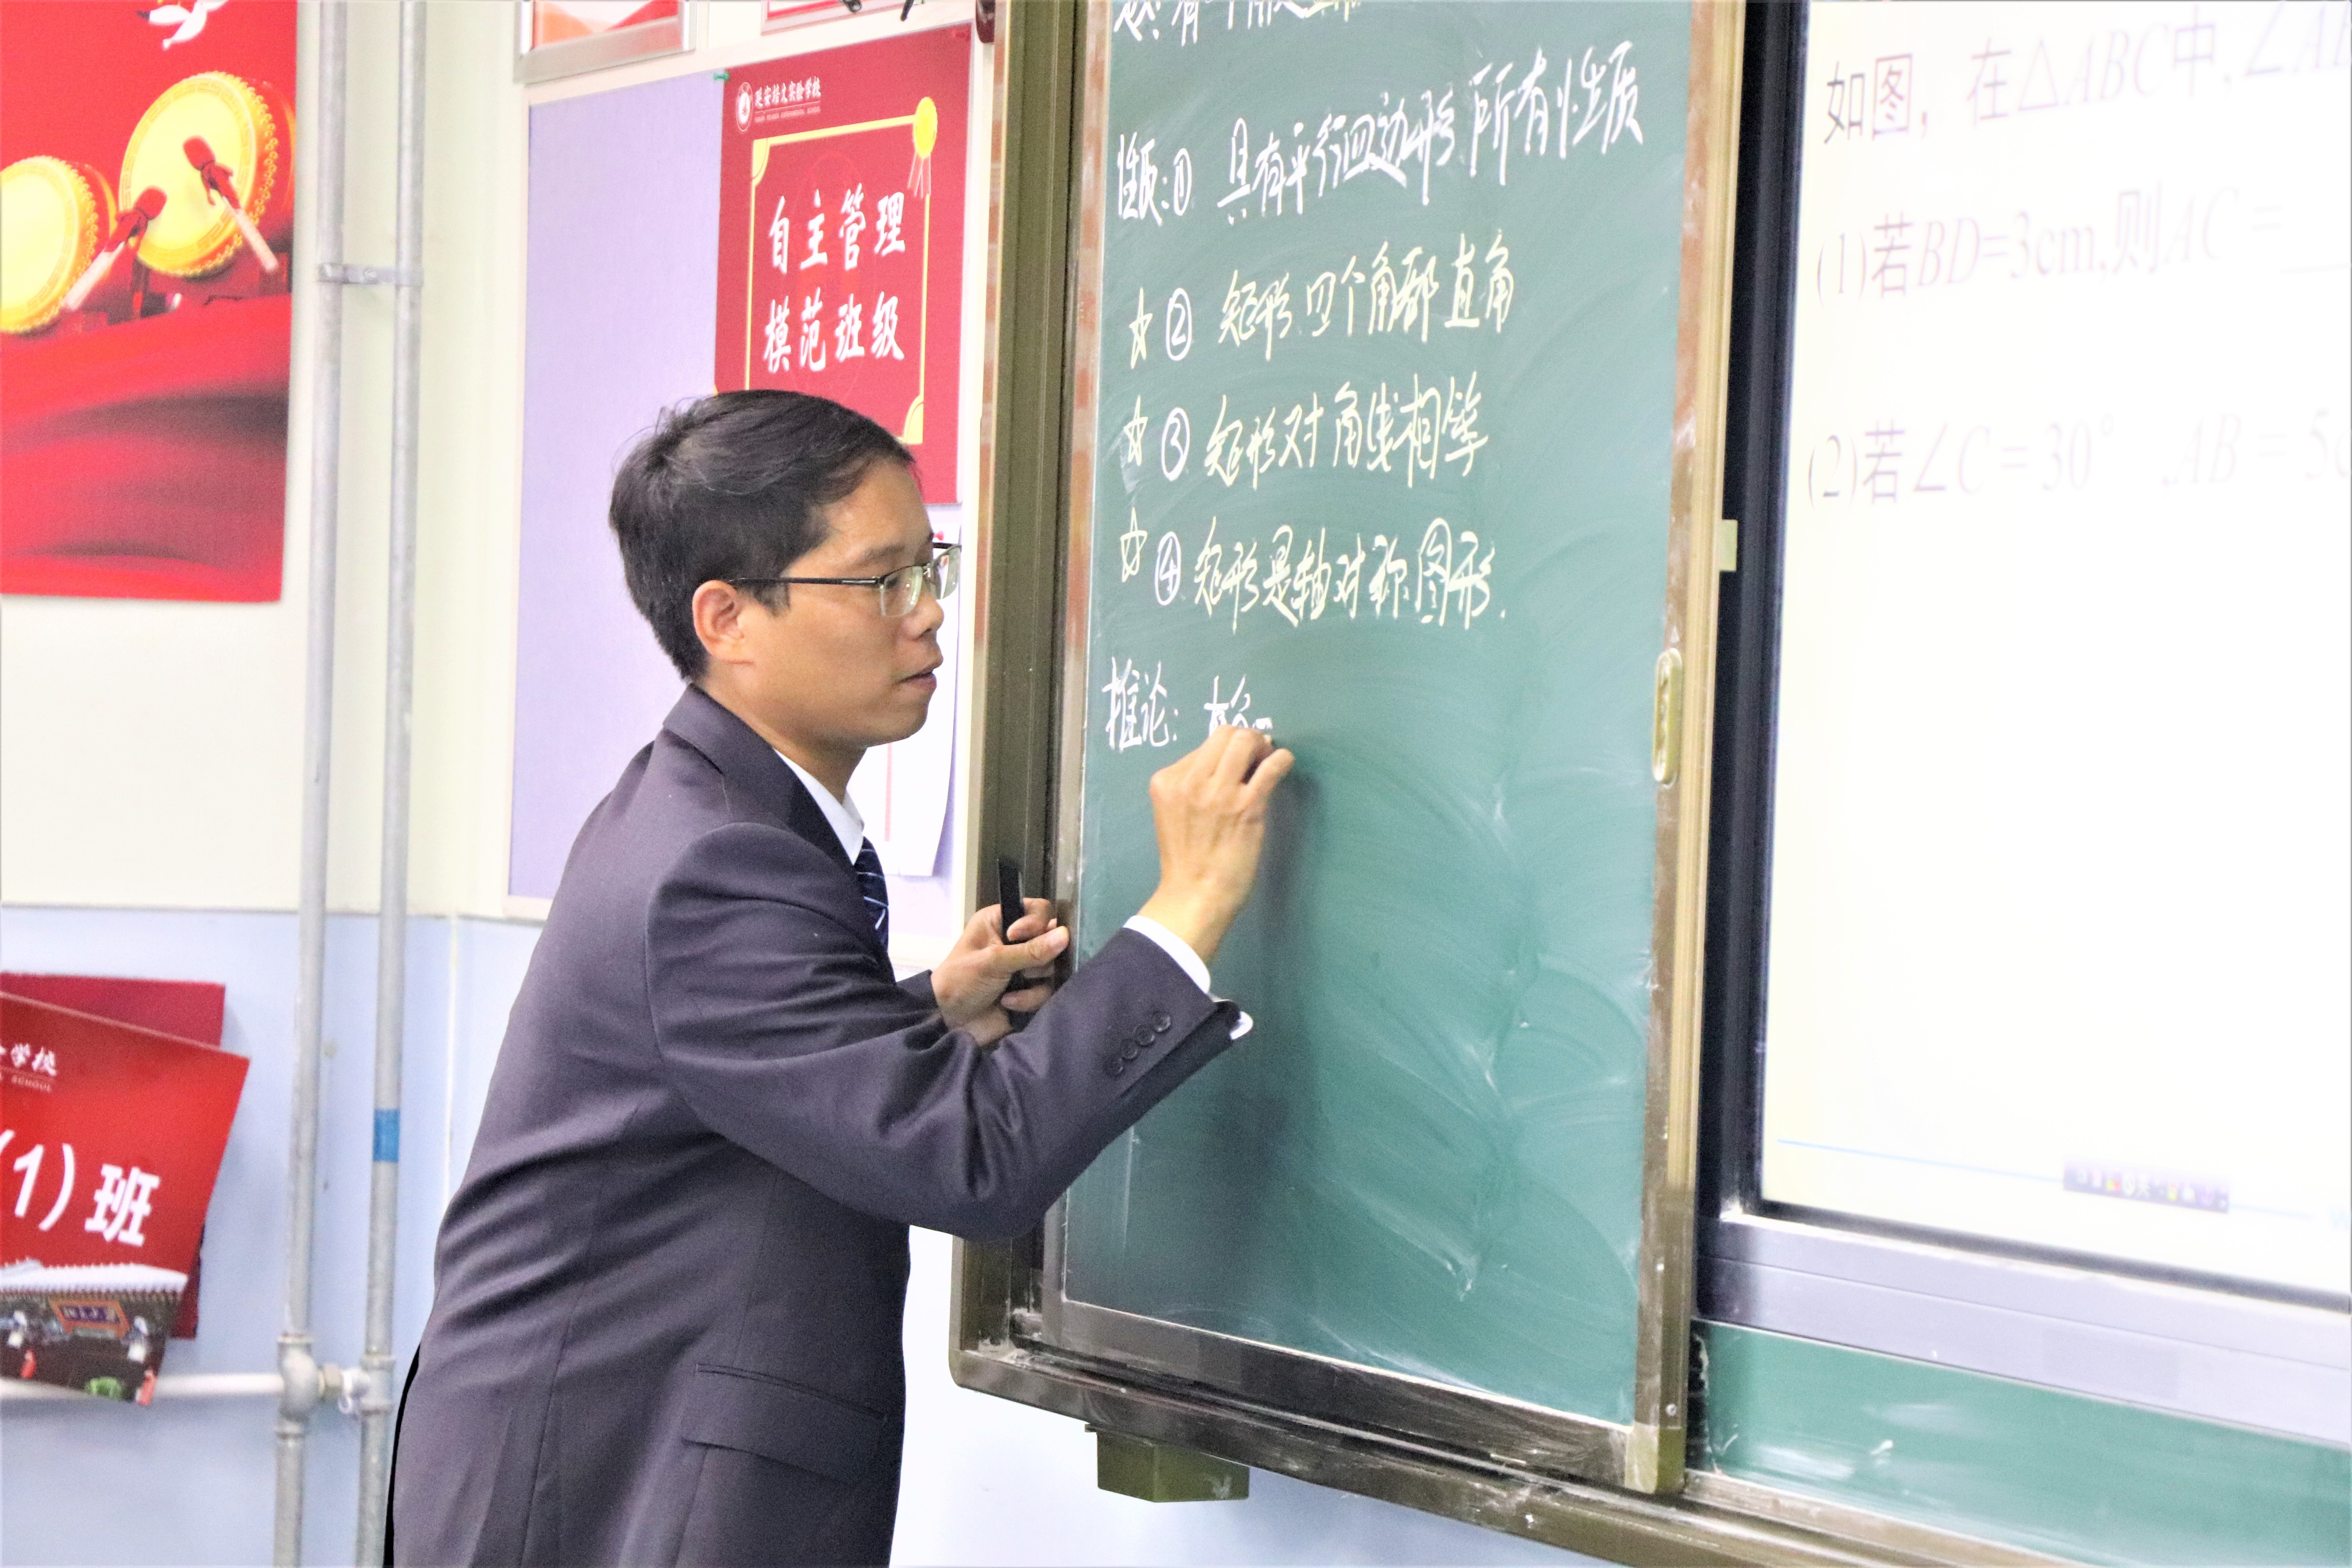 延安培文实验学校
自主管理
模范班级
学校
SCHOOL
(1)班
性质:① 具有平行四边形所有性质
☆② 矩形四个角都直角
☆③ 矩形对角线相等
☆④ 矩形是轴对称图形.
推论: 直角
如图, 在△ABC中,∠AB
(1)若BD=3cm,则AC=
(2)若∠C=30° ,AB=5c